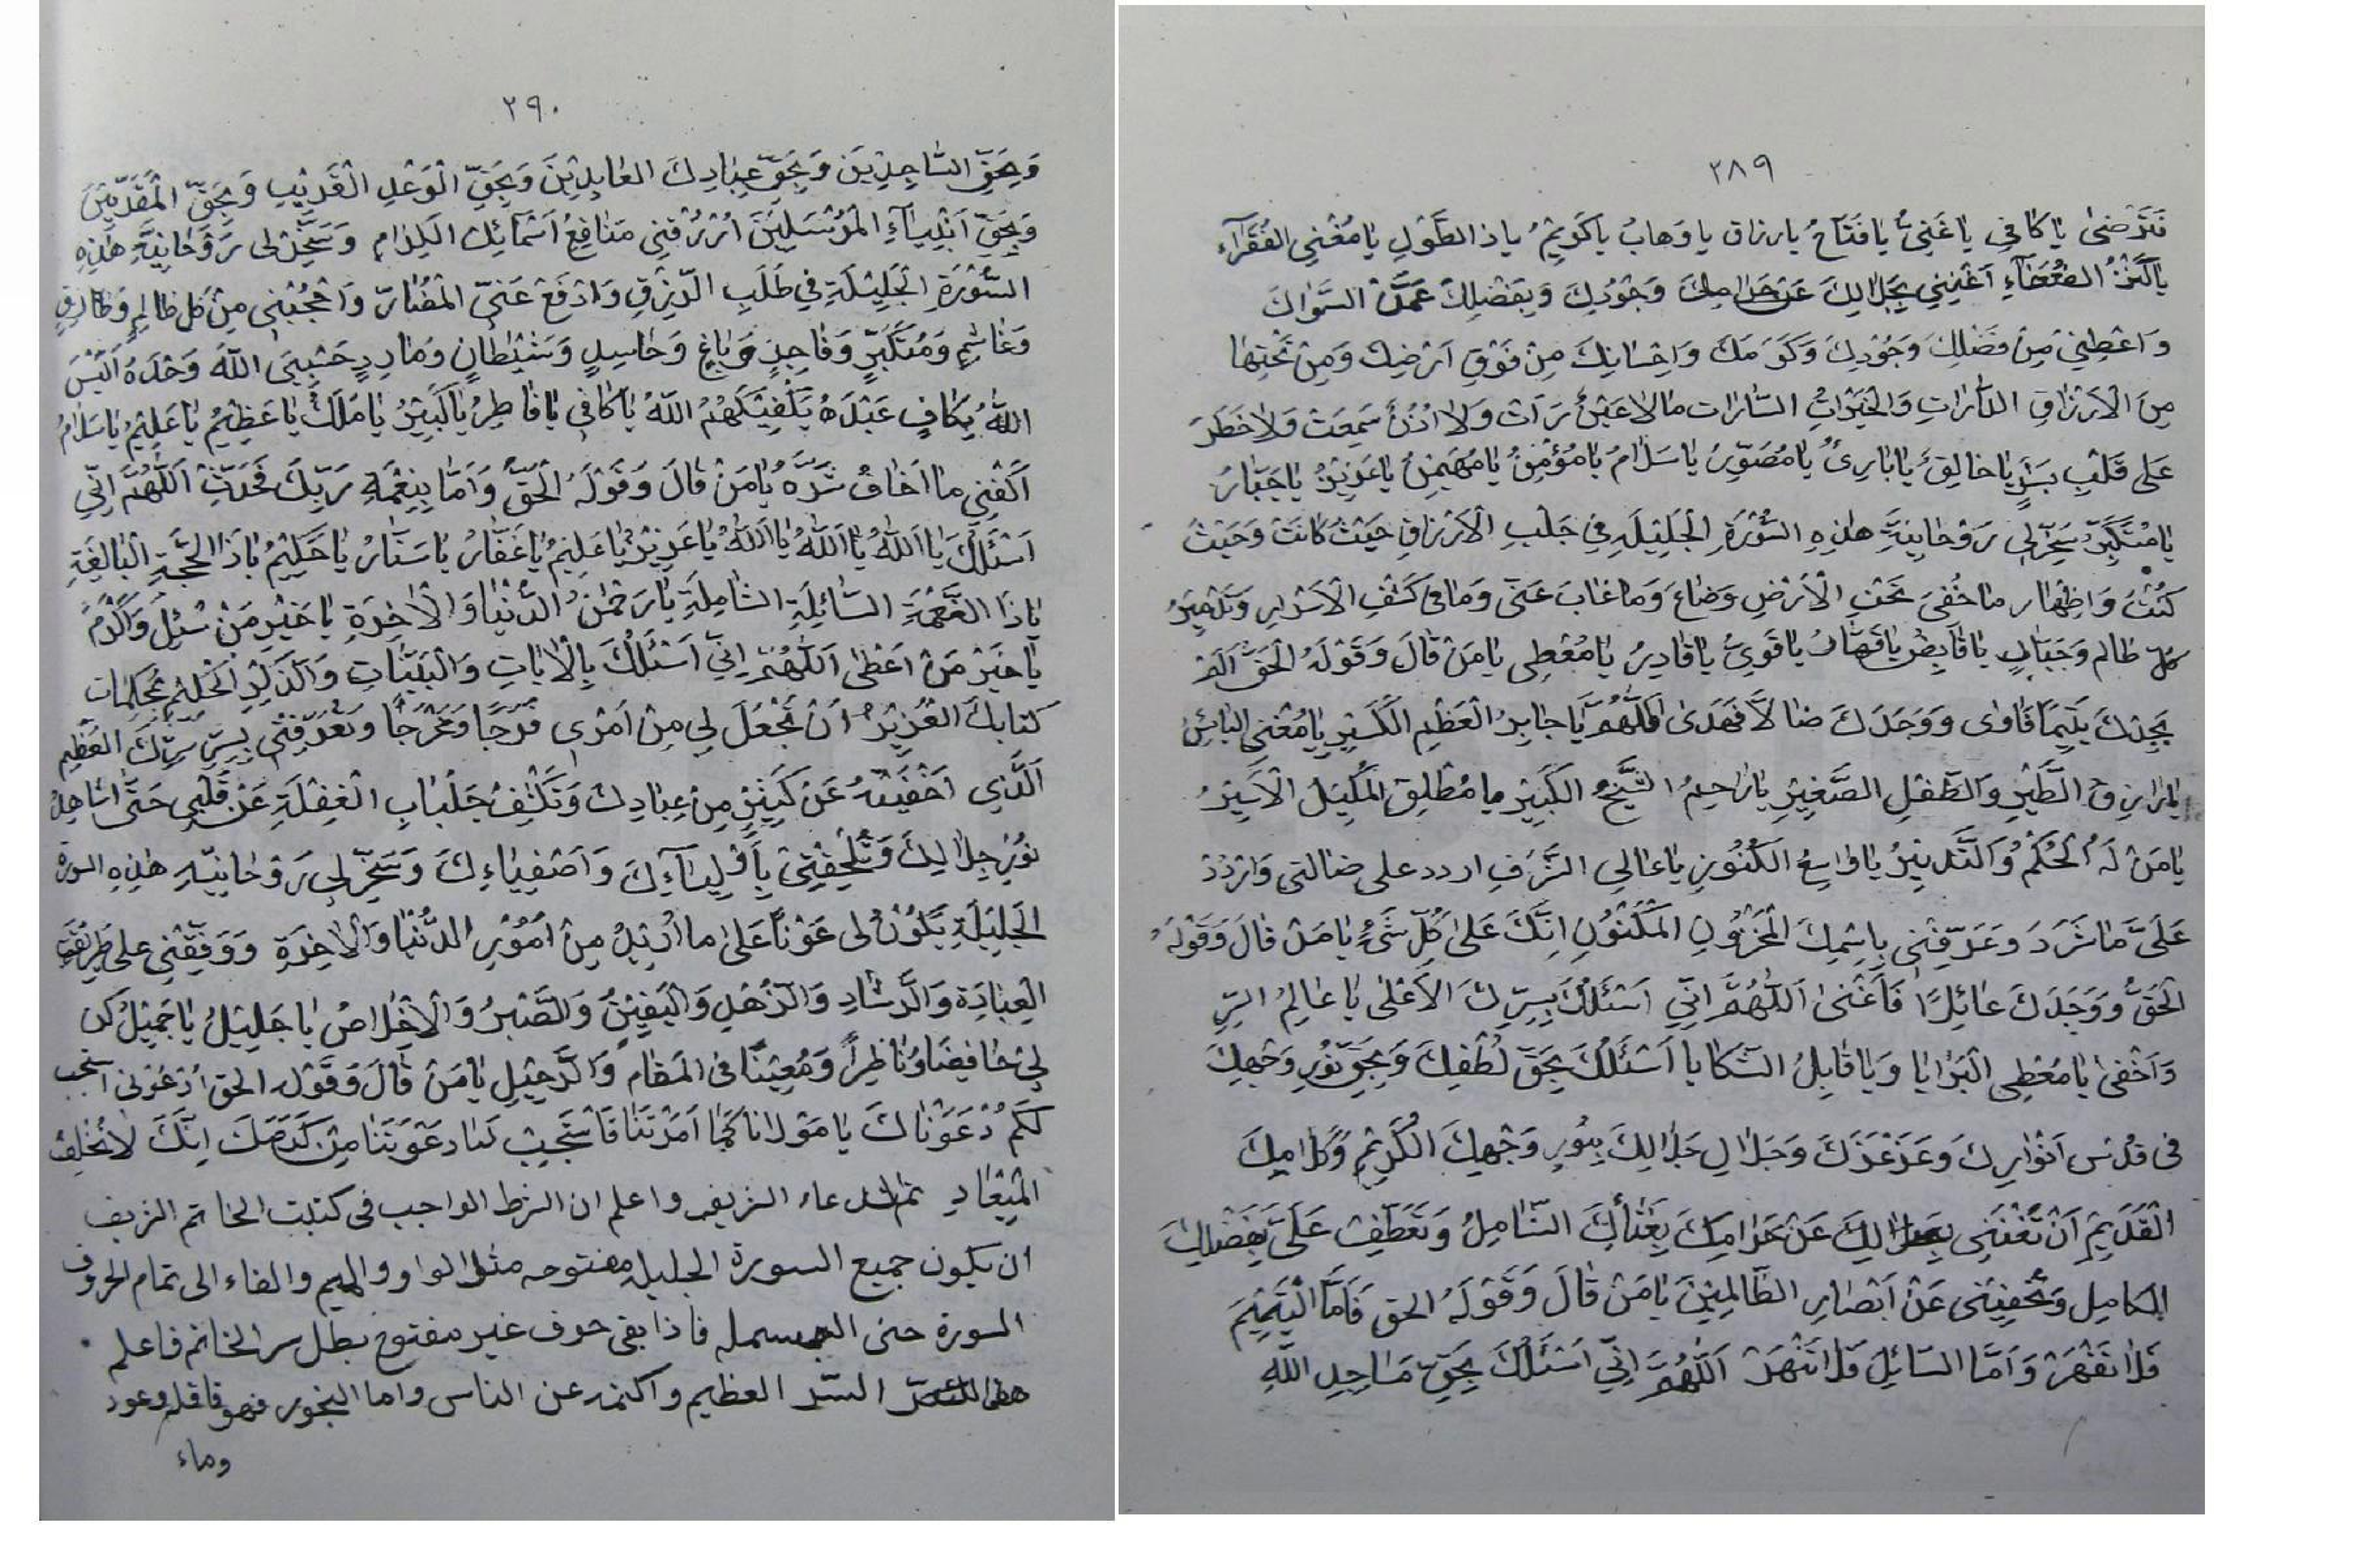 ٢٨٩
فَتَرْضىٰ يا كافِي يا غَنِيُّ يا فَتّاحُ يا رزاق يا وَهابُ يا كَرِيمُ يا ذا الطَّوْلِ يا مُغْنِي الفُقَرآءِ
أَغْنِنِي بِحَلالِكَ عَنْ حَرامِكَ وَجُودِكَ وَبِفَضْلِكَ عَمَّنْ السَّوَاكَ
وَاَعْطِنِي مِنْ فَضْلِكَ وَجُودِكَ وَكَرَمِكَ وَاِحْسَانِكَ مِنْ فَوْقِ اَرْضِكَ وَمِنْ تَحْتِهَا
مِنَ الْاَرْزَاقِ وَالْخَيْرَاتِ السَّارات مالا عَيْنٌ رَأَتْ وَلا اُذُنٌ سَمِعَتْ وَلا خَطَرَ
عَلى قَلْبِ بَشَرٍ يا خالِقُ يا بارِئُ يا مُصَوِّرُ يا سَلامُ يا مُؤْمِنُ يا مُهَيْمِنُ يا عَزِيزُ يا جَبّارُ
يا مُتَكَبِّرُ سَخِّرْ لِي رَوْحانِيَّةِ هذِهِ السُّوْرَةِ الْجَلِيلَةِ فِي جَلْبِ الْاَرْزاقِ حَيْثُ كانَتْ وَحَيْثُ
كُنْتُ وَاِظْهار ما خُفِيَ تَحْتِ الْاَرْضِ وَضاعَ وَما غابَ عَنِّي وَما في كَشْفِ الْاَسْرارِ وَتَدْمِيرُ
كل ظالم وَجَبَّارٍ يا قابِضُ يا قَهّارُ يا قَوِيُّ يا قادِرُ يا مُعْطِي يا مَنْ قالَ وَقَوْلَهُ الْحَقَّ اَلَمْ
يَجِدْكَ يَتِيمًا فَاوى وَوَجَدَكَ ضالاًّ فَهَدى اَللّٰهُمَّ يا جابِرُ الْعَظْمِ الْكَسِيْرِ يا مُغْنِي البائِسُ
يا رازِقُ الطَّيْرِ وَالطِّفْلِ الصَّغِيْرِ يا راحِمُ الشَّيْخُ الكَبِيْر يا مُطْلِقِ الْمُكَبَّلِ الْاَسِيْرُ
يا مَنْ لَهُ الْحُكْمُ وَالتَّدْبِيْرُ يا واسِعُ الكُنُوْزِ يا عالِي الشَّرَفِ اردد على ضالتي وَارْدُدْ
عَلَيَّ ما شَرَدَ وَعَرِّفْنِي بِاِسْمِكَ الْمَخْزُوْنِ الْمَكْنُوْنِ اِنَّكَ عَلىٰ كُلِّ شَيْءٍ يا مَنْ قالَ وَقَوْلَهُ
الْحَقُّ وَوَجَدَكَ عائِلاً فَاَغْنىٰ اَللّٰهُمَّ اِنِّي اَسْئَلُكَ بِسِرِّكَ الْاَعْلىٰ يا عالِمُ السِّرِّ
وَاَخْفىٰ يا مُعْطِي الْبَرايا وَيا قابِلُ الشَّكايا اَسْئَلُكَ بِحَقِّ لُطْفِكَ وَبِحَقِّ نُوْرِ وَجْهِكَ
فى قُدْسِ اَنْوارِكَ وَعَزِّ عِزِّكَ وَجَلالِ جَلالِكَ بِنُوْرِ وَجْهِكَ الْكَرِيْمِ وَكَلامِكَ
الْقَدِيْمِ اَنْ تُغْنِنِي بِحَلالِكَ عَنْ حَرامِكَ بِغَنائِكَ الشّامِلُ وَتَعَطَّفْ عَلَيَّ بِفَضْلِكَ
الكامِلِ وَتُخْفِيْنِي عَنْ اَبْصارِ الظّالِمِيْنَ يا مَنْ قالَ وَقَوْلَهُ الحق فَاَمَّا الْيَتِيْمَ
فَلا تَقْهَرْ وَاَمَّا السّائِلَ فَلا تَنْهَرْ اَللّٰهُمَّ اِنِّي اَسْئَلُكَ بِحَقِّ مَساجِدِ اللّٰهِ
٢٩٠
وَبِحَقِّ السّاجِدِيْنَ وَبِحَقِّ عِبادِكَ العابِدِيْنَ وَبِحَقِّ الْوَعْدِ الْقَرِيْبِ وَبِحَقِّ الْمُقَرَّبِيْنَ
وَبِحَقِّ اَنْبِيآءِ الْمُرْسَلِيْنَ اُرْزُقْنِي مَنافِعُ اَسْمائِكَ الكِرامِ وَسَخِّرْ لى رَوْحانِيَّةِ هٰذِهِ
السُّوْرَةِ الْجَلِيْلَةِ فِي طَلَبِ الرِّزْقِ وَادْفَعْ عَنِّي الْمَضارّ وَاحْجُبْنِي مِنْ كُلِّ ظالِمٍ وَطارِقٍ
وَغاشِمٍ وَمُتَكَبِّرٍ وَفاجِرٍ وَباغٍ وَحاسِدٍ وَشَيْطانٍ وَمارِدٍ حَسْبِيَ اللّٰهُ وَحْدَهُ اَلَيْسَ
اللّٰهُ بِكافٍ عَبْدَهُ يا كافِي يا فاطِرُ يا كَبِيْرُ يا مَلِكُ يا عَظِيْمُ يا عَلِيْمُ يا سَلامُ
اَكْفِنِي ما اَخافُ شَرَّهُ يا مَنْ قالَ وَقَوْلَهُ الْحَقّ وَاَمّا بِنِعْمَةِ رَبِّكَ فَحَدِّثْ اَللّٰهُمَّ اِنِّي
اَسْئَلُكَ يا اَللّٰهُ يا اَللّٰهُ يا اَللّٰهُ يا عَزِيْزُ يا عَلِيْمُ يا غَفّارُ يا سَتّارُ يا حَلِيْمُ يا ذَا الْحُجَّةِ الْبالِغَةِ
يا ذَا النِّعْمَةِ السّائِلَةِ الشّامِلَةِ يا رَحْمٰنُ الدُّنْيا وَالْاٰخِرَةِ يا خَيْرِ مَنْ سُئِلَ وَاَكْرَمُ
يا خَيْرَ مَنْ اَعْطىٰ اَللّٰهُمَّ اِنِّي اَسْئَلُكَ بِالْاياتِ وَالْبَيِّناتِ وَالذِّكْرِ الْحَكِيْمِ مُحْكَماتِ
كتابِكَ الْعَزِيْزُ اَنْ تَجْعَلَ لِي مِنْ اَمْرى فَرَجًا وَمَخْرَجًا وَتُعَرِّفْنِي بِسِرِّ سِرِّكَ العَظِيْمِ
اَلَّذِي اَخْفَيْتَهُ عَنْ كَثِيْرٍ مِنْ عِبادِكَ وَتَكْشِفْ جَلْبابِ الْغَفْلَةِ عَنْ قَلْبِي حَتّى اُشاهِدَ
نُوْرَ جَلالِكَ وَتُلْحِقْنِي بِاَوْلِيآءِكَ وَاَصْفِياءِكَ وَسَخِّرْ لِي رَوْحانِيَّةِ هٰذِهِ السورة
الْجَلِيْلَةِ يَكُوْنُ لى عَوْنًا عَلىٰ ما اُرِيْدُ مِنْ اُمُوْرِ الدُّنْيا وَالْاٰخِرَةِ وَوَفِّقْنِي على طَرِيْقَةِ
العِبادَةِ وَالرَّشادِ وَالزُّهْدِ وَالْيَقِيْنُ وَالصَّبْرُ وَالْاِخْلاصُ يا جَلِيْلُ يا جَمِيْلُ كن
لِي حافِضًا وَناظِراً وَمُعِيْنًا فى الْمَقامِ وَالرَّحِيْلِ يا مَنْ قالَ وَقَوْلَه الحق اُدْعُوْنى استجب
لَكُمْ دَعَوْناكَ يا مَوْلانا كَمَا اَمَرْتَنا فَاسْتَجِبْ لَنا دَعْوَتَنا مِنْ كَرَمِكَ اِنَّكَ لا تُخْلِفُ
الْمِيْعادِ تم الدعاء الشريف واعلم ان الشرط الواجب فى كتبت الخاتم الشريف
ان يكون جميع السورة الجليله مفتوحه مثل الواو والميم والفاء الى تمام الحروف
السورة حتى البسمله فاذا بقى حرف غير مفتوح بطل سر الخاتم فاعلم
هذا السّر العظيم واكتمه عن الناس واما البخور فهو قاقله وعود
وماء